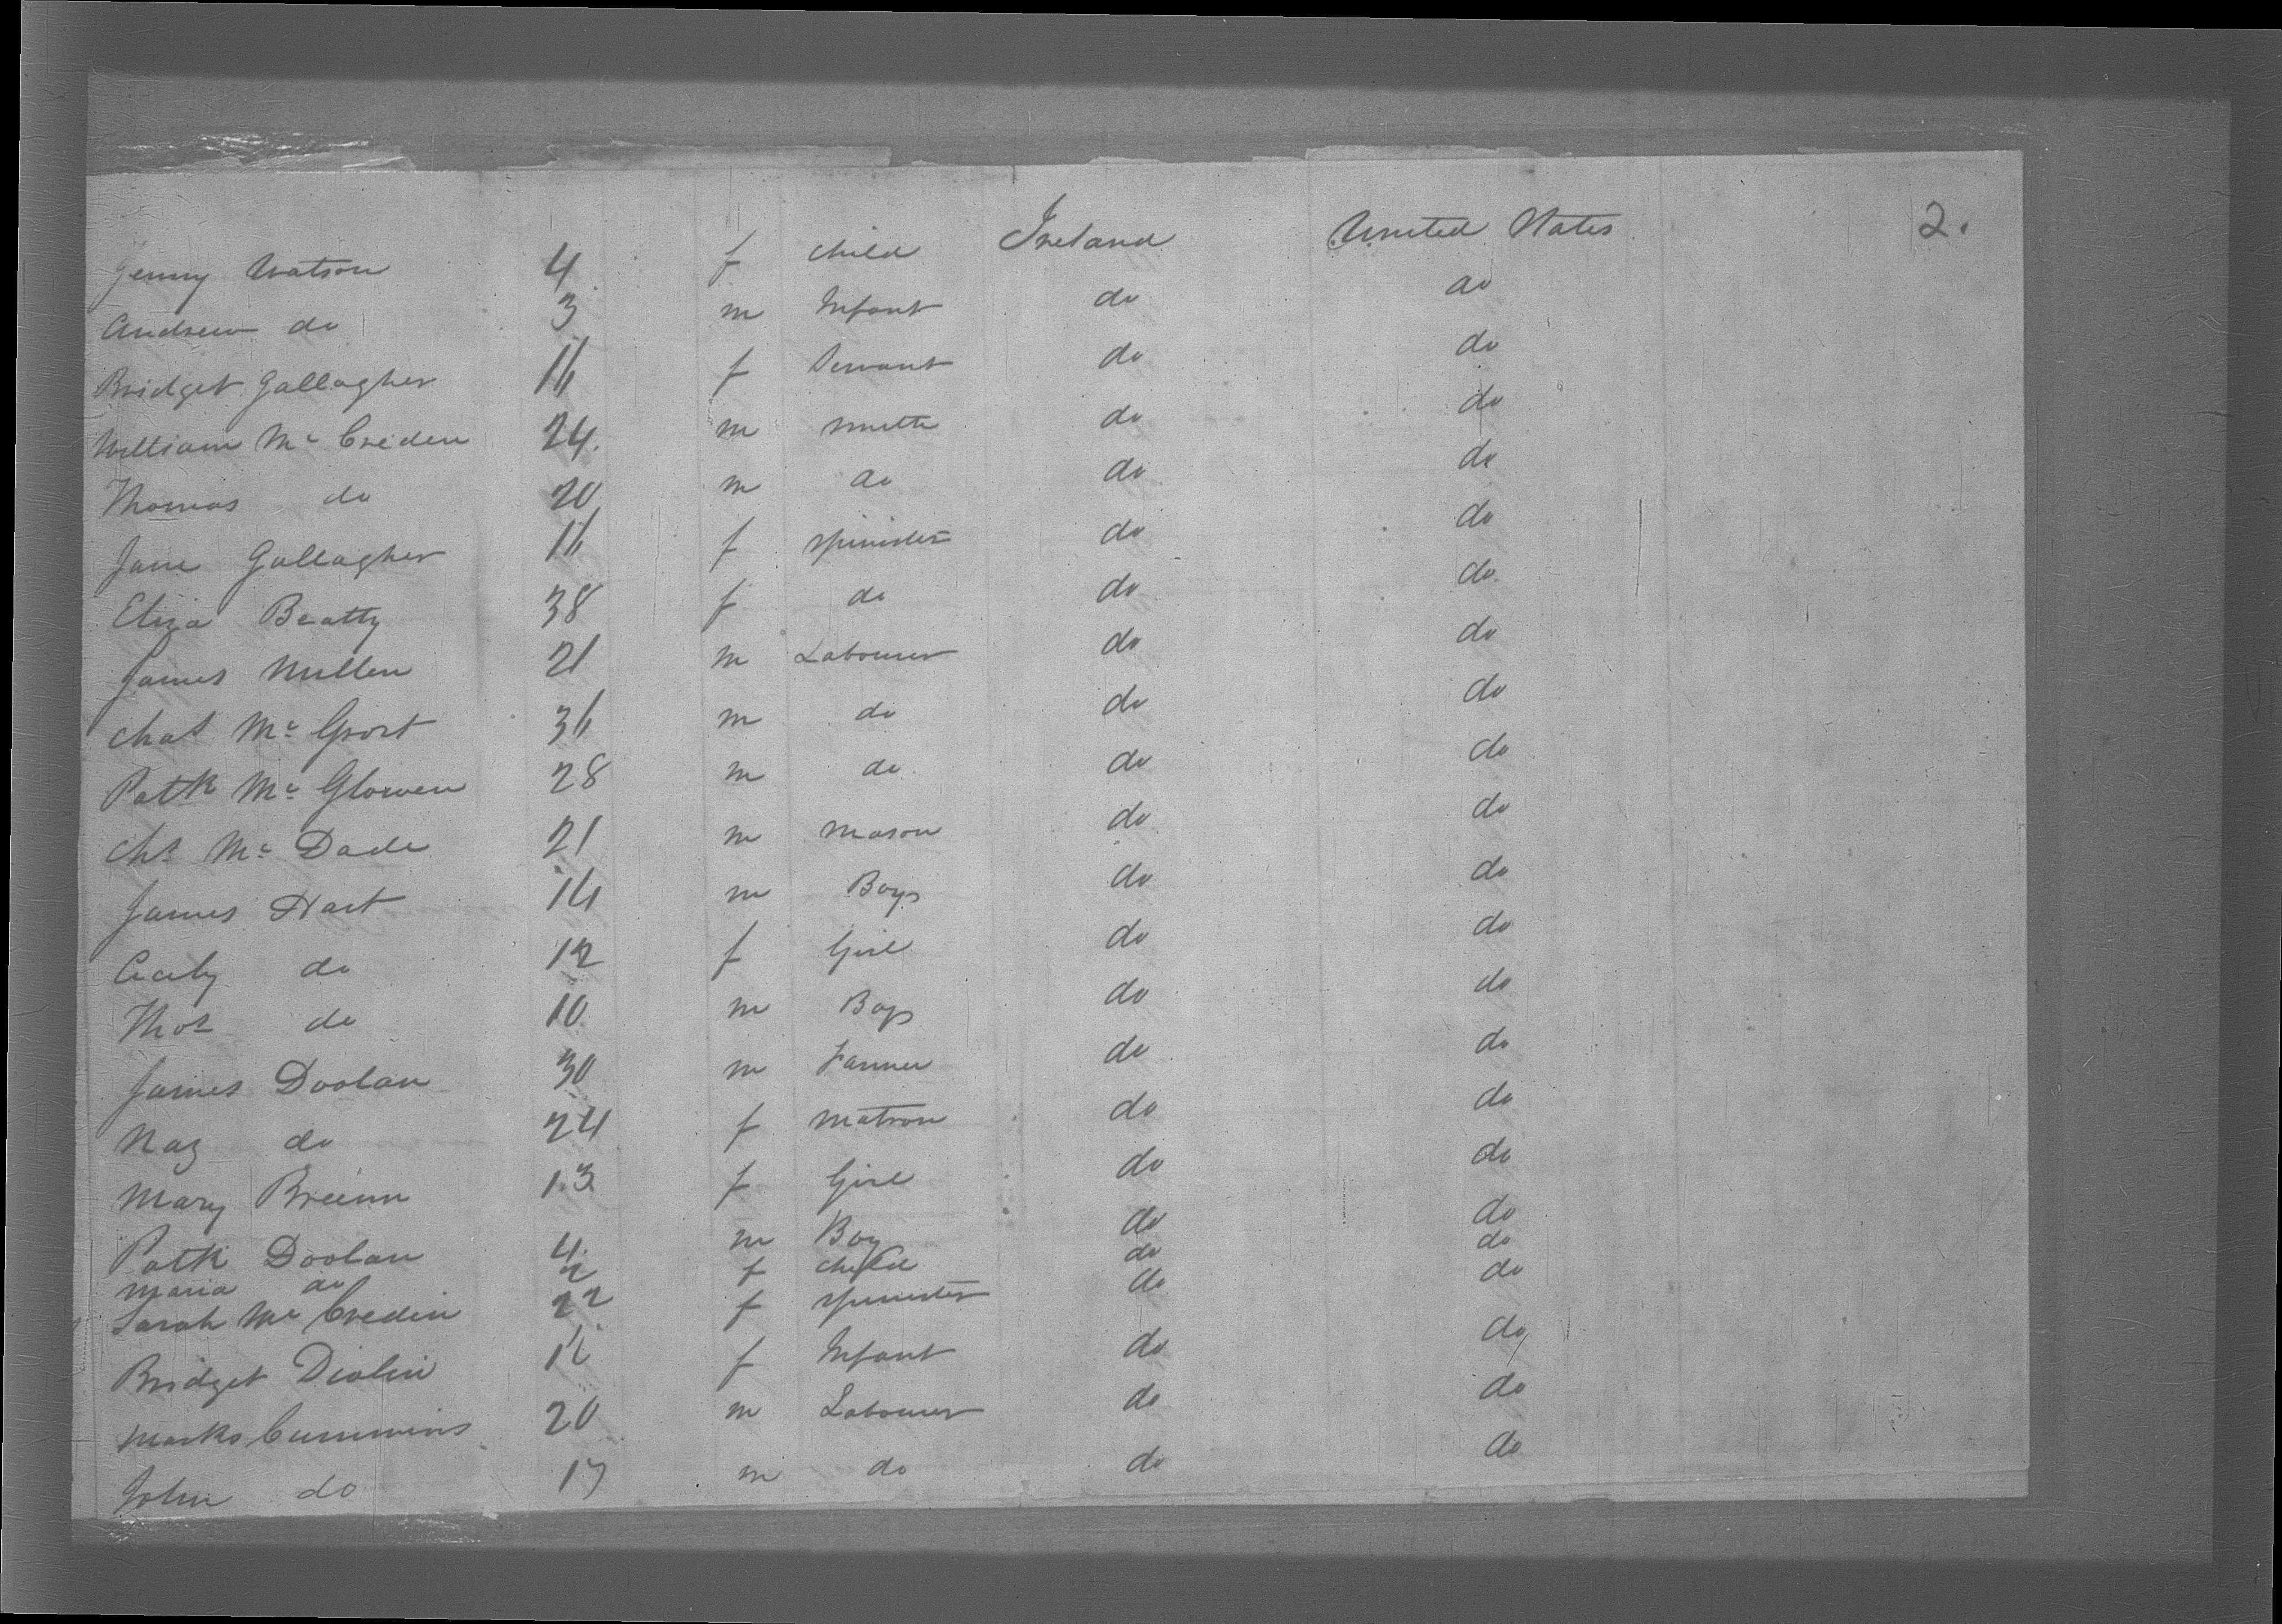 2.
Jenny Watson 4 f child Ireland United States
Andrew do 3 m Infant do do
Bridget Gallagher 16 f Servant do do
William Mc Creden 24. m smith do do
Thomas do 20 m do do do
Jane Gallagher 16 f spinster do do
Eliza Beatty 38 f do do do
James Mullen 21 m Labourer do do
Chas Mc Grort 36 m do do do
Patk Mc Glowen 28 m do do do
Chs Mc Dade 21 m mason do do
James Hart 14 m Boy do do
Cicily do 12 f Girl do do
Thos do 10 m Boy do do
James Doolan 30 m Farmer do do
do 24 f matron do do
Mary 13 f Girl do do
Patk Doolan 4 m Boy do do
Maria do 2 f child do do
Sarah Mc Creden 22 f spinster do do
Bridget f Infant do do
Marks Cummins 20 m Labourer do do
John do 17 m do do do